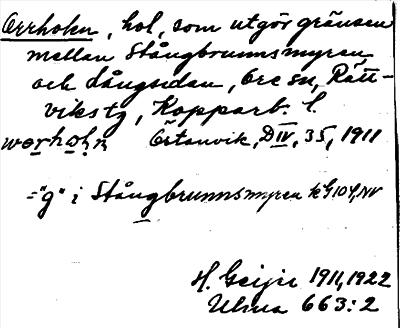 Orrholen, hol, som utgör gränsen
mellan Stångbrunnsmyren
och Långsidan, Ore sn, Rätt-
viks tg, Kopparb. l.
worhoḷn Östanvik, DIV, 35, 1911
="g" i Stångbrunnsmyren
H. Geijer 1911, 1922
Ulma 663:2